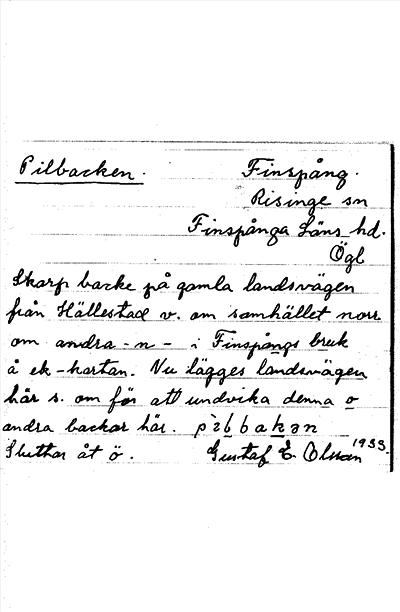 Pilbacken. Finspång.
Risinge sn
Finspånga Läns hd.
Ögl
Skarp backe på gamla landsvägen
från Hällestad v. om samhället norr
om andra -n- i Finspångs bruk
å ek-kartan. Nu lägges landsvägen
här s. om för att undvika denna o
andra backar här. pìbbakən
Sluttar åt ö. Gustaf E. Olsson 1933.